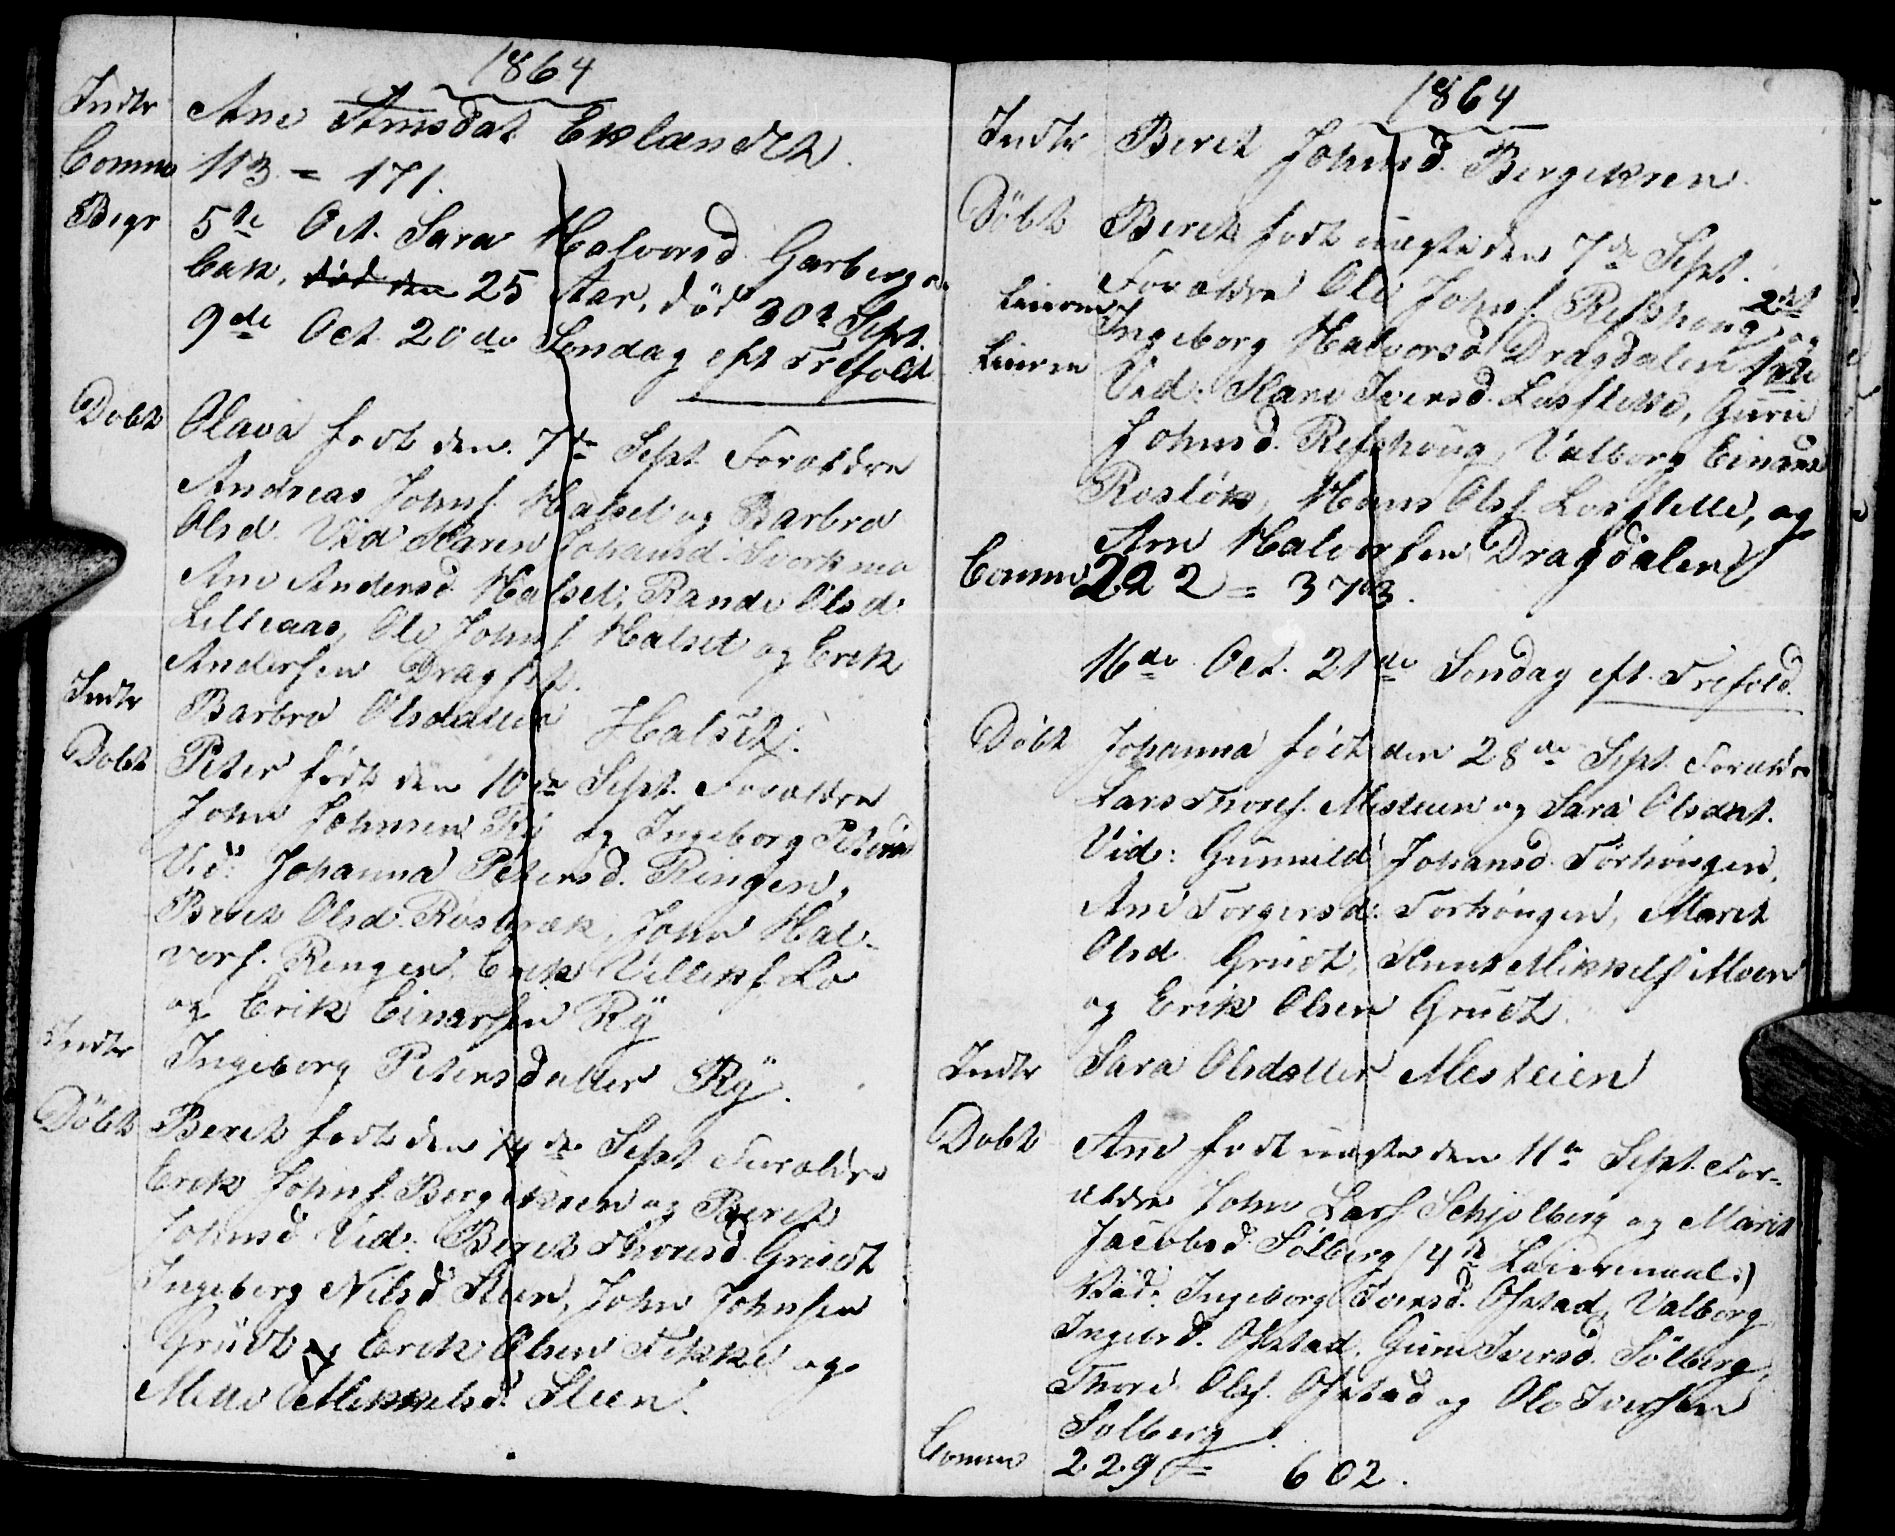 1864
Indtr Ane Arnsdat Eklændet.
Comm 113 = 171.
Begr 5te Oct. Sara Halvorsd. Garbergs
bak, død den 25 Aar, død 30te Sept.
9de Oct. 20de Søndag eft Trefold
Døbt Olava født den 7de Sept. Forældre
Andreas Johns. Halset og Barbro
Olsd. Vid Karen Johansd. Storkmo
Ane Andersd. Halset, Rande Olsd.
Lilleaas, Ole Johns. Halset og Erik
Andersen Dragset.
Indtr Barbro Olsdatter Halset.
Døbt Peter født den 10de Sept. Forældre
John Johnsen Ry og Ingeborg Petersd
Vid: Johanna Petersd. Ringen,
Beret Olsd. Rosbræk, John Hal-
vors. Ringen, Erik Villiks. Lo
og Erik Einarsen Rÿ
Indtr Ingeborg Petersdatter Rÿ.
Døbt Beret født den 14de Sept Forældre
Erik Johns. Bergekren og Beret
Johnsd. Vid: Beret Thoresd. Grudt
Ingeborg Nilsd. Steen, John Johnsen
Grudt og Erik Olsen Fikke og
Mette Mikkelsd. Steen.
1864
Indtr Beret Johnsd. Bergekren.
Døbt Beret født uægte den 7de Sept.
Forældre Ole Johns. Refshoug 2det og
Leierm Ingeborg Halvorsd. Dragdalen 1ste
Leierm Vid: Mari Iversd. Lefstette, Guru
Johnsd. Refshoug, Valborg Einarsd
Rosløk, Hans Ols. Lefstette, og
Arn Halvorsen Dragdalen
Comm 222 = 373.
16de Oct. 21de Søndag eft. Trefold.
Døbt Johanna født den 28de Sept. Forældre
Lars Thores. Mesteien og Sara Olsdat.
Vid: Gunnild Johansd. Torhougen,
Ane Torgersd. Torhougen, Marit
Olsd. Grudt, Knut Mikkels. Moen
og Erik Olsen Grudt.
Indtr Sara Olsdatter Mesteien
Døbt Ane født uægte den 11te Sept. For-
ældre John Lars. Schjølberg og Marit
Jacobsd. Sølberg (4de Leiermaal:)
Vid: Ingeborg Iversd. Ofstad, Valborg
Ingebr d. Ofstad, Guru Iversd. Sølberg,
Thore Ols. Ofstad og Ole Iversen
Sølberg
Comm 229 = 602.